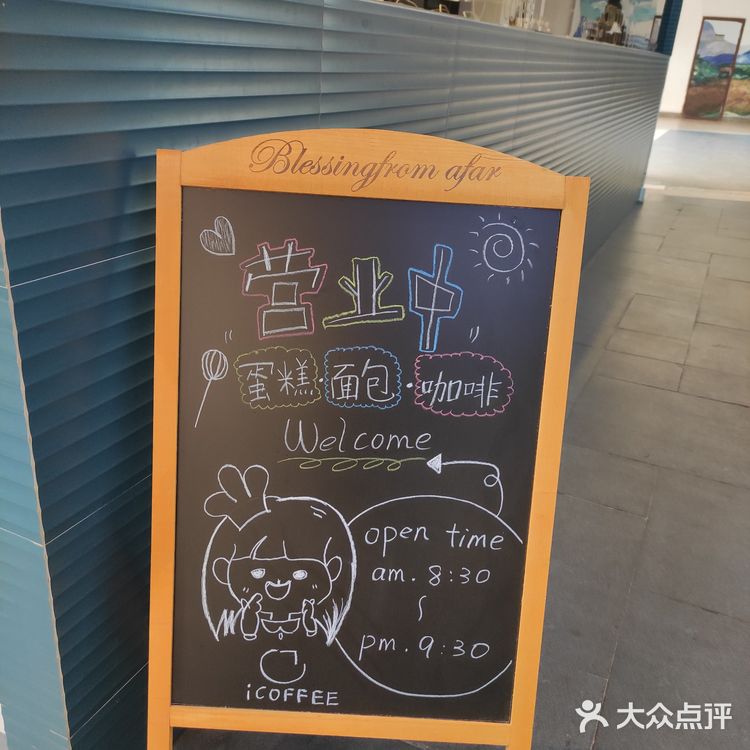 Blessingfrom afar
营业中
"蛋糕·面包·咖啡"
Welcome
open time
am. 8:30
~
pm. 9:30
iCOFFEE
大众点评